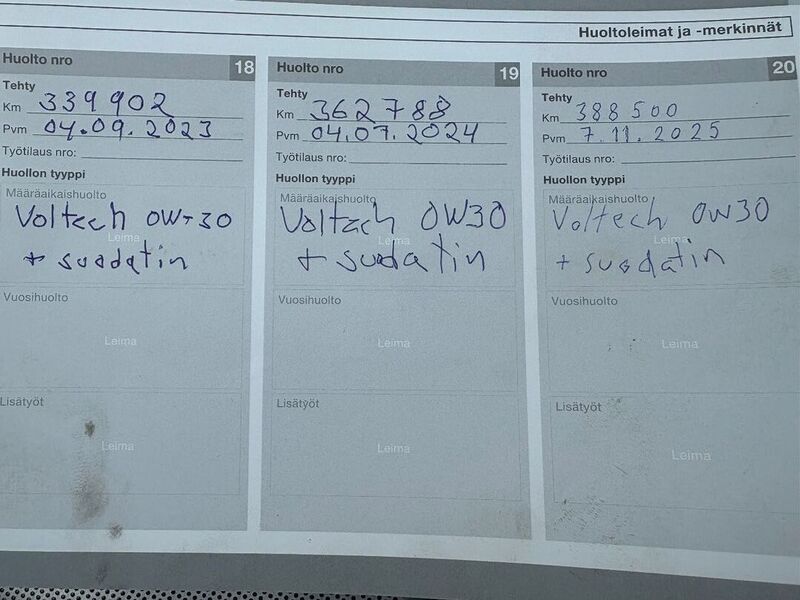 Huoltoleimat ja -merkinnät
Huolto nro 18
Tehty
Km 339 902
Pvm 04.09.2023
Työtilaus nro:
Huollon tyyppi
Määräaikaishuolto
Voltech 0W-30
Leima
+ suodatin
Vuosihuolto
Leima
Lisätyöt
Leima
Huolto nro 19
Tehty
Km 362 788
Pvm 04.07.2024
Työtilaus nro:
Huollon tyyppi
Määräaikaishuolto
Voltech 0W30
Leima
+ suodatin
Vuosihuolto
Leima
Lisätyöt
Leima
Huolto nro 20
Tehty
Km 388 500
Pvm 7.11.2025
Työtilaus nro:
Huollon tyyppi
Määräaikaishuolto
Voltech 0W30
Leima
+ suodatin
Vuosihuolto
Leima
Lisätyöt
Leima